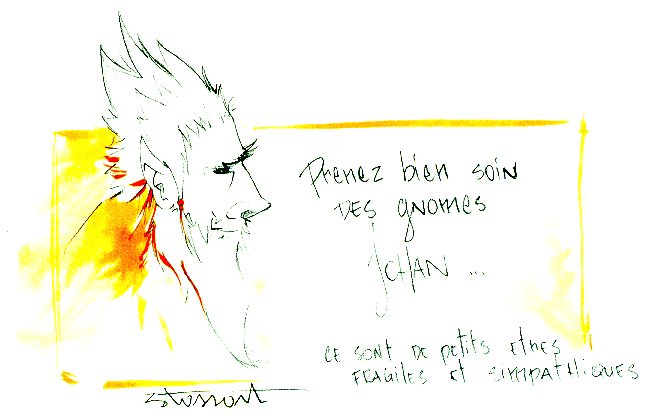 Prenez bien soin
DES gnomes
JCHAN ...
CE SONT DE petits etres
FRAGILES et SIMPATHIQUES